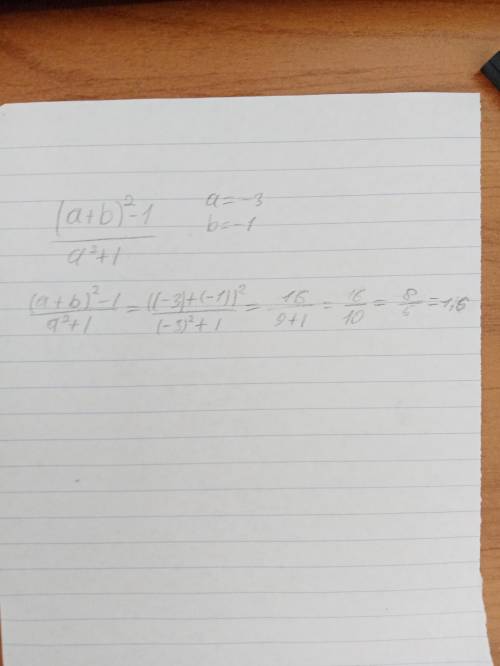 (a+b)²-1 a=-3
a²+1 b=-1
(a+b)²-1/a²+1 = ((-3)+(-1))²/(-3)²+1 = 16/9+1 = 16/10 = 8/5 = 1,6